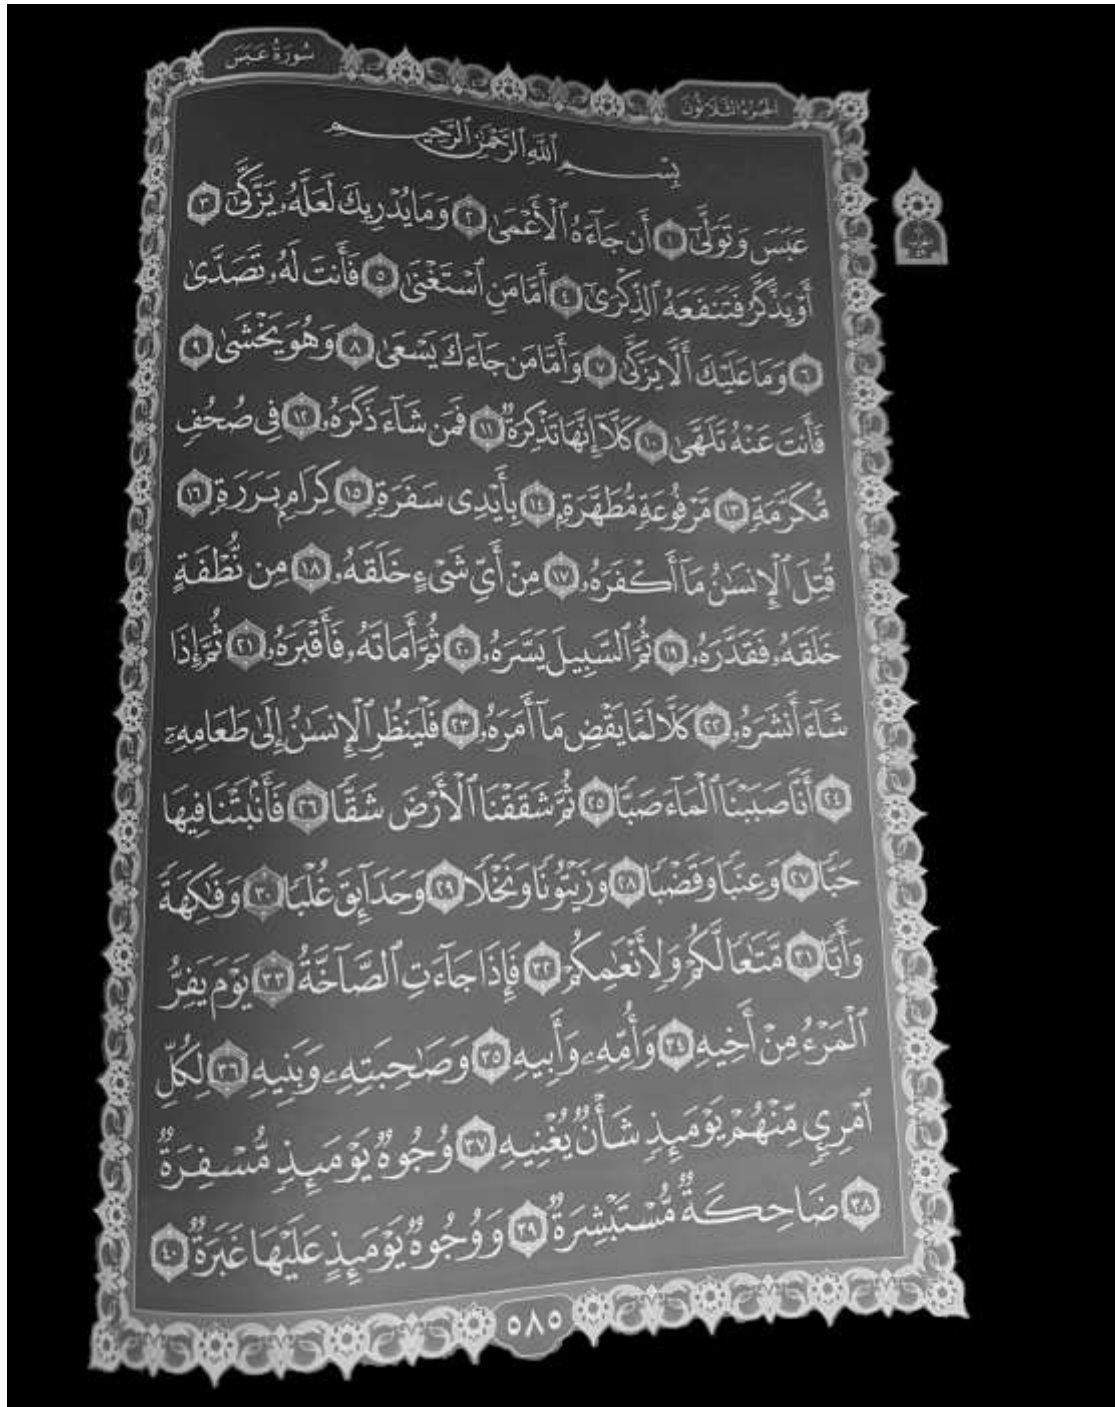 سُورَةُ عَبَسَ
الجُزءُ الثَّلَاثُونَ
بِسْمِ ٱللَّهِ ٱلرَّحْمَٰنِ ٱلرَّحِيمِ
عَبَسَ وَتَوَلَّىٰٓ ١ أَن جَآءَهُ ٱلْأَعْمَىٰ ٢ وَمَا يُدْرِيكَ لَعَلَّهُۥ يَزَّكَّىٰٓ ٣
أَوْ يَذَّكَّرُ فَتَنفَعَهُ ٱلذِّكْرَىٰٓ ٤ أَمَّا مَنِ ٱسْتَغْنَىٰ ٥ فَأَنتَ لَهُۥ تَصَدَّىٰ
٦ وَمَا عَلَيْكَ أَلَّا يَزَّكَّىٰ ٧ وَأَمَّا مَن جَآءَكَ يَسْعَىٰ ٨ وَهُوَ يَخْشَىٰ ٩
فَأَنتَ عَنْهُ تَلَهَّىٰ ١٠ كَلَّآ إِنَّهَا تَذْكِرَةٌ ١١ فَمَن شَآءَ ذَكَرَهُۥ ١٢ فِى صُحُفٍ
مُّكَرَّمَةٍ ١٣ مَّرْفُوعَةٍ مُّطَهَّرَةٍۭ ١٤ بِأَيْدِى سَفَرَةٍ ١٥ كِرَامٍۭ بَرَرَةٍ ١٦
قُتِلَ ٱلْإِنسَٰنُ مَآ أَكْفَرَهُۥ ١٧ مِنْ أَىِّ شَىْءٍ خَلَقَهُۥ ١٨ مِن نُّطْفَةٍ
خَلَقَهُۥ فَقَدَّرَهُۥ ١٩ ثُمَّ ٱلسَّبِيلَ يَسَّرَهُۥ ٢٠ ثُمَّ أَمَاتَهُۥ فَأَقْبَرَهُۥ ٢١ ثُمَّ إِذَا
شَآءَ أَنشَرَهُۥ ٢٢ كَلَّا لَمَّا يَقْضِ مَآ أَمَرَهُۥ ٢٣ فَلْيَنظُرِ ٱلْإِنسَٰنُ إِلَىٰ طَعَامِهِۦٓ
٢٤ أَنَّا صَبَبْنَا ٱلْمَآءَ صَبًّا ٢٥ ثُمَّ شَقَقْنَا ٱلْأَرْضَ شَقًّا ٢٦ فَأَنۢبَتْنَا فِيهَا
حَبًّا ٢٧ وَعِنَبًا وَقَضْبًا ٢٨ وَزَيْتُونًا وَنَخْلًا ٢٩ وَحَدَآئِقَ غُلْبًا ٣٠ وَفَٰكِهَةً
وَأَبًّا ٣١ مَّتَٰعًا لَّكُمْ وَلِأَنْعَٰمِكُمْ ٣٢ فَإِذَا جَآءَتِ ٱلصَّآخَّةُ ٣٣ يَوْمَ يَفِرُّ
ٱلْمَرْءُ مِنْ أَخِيهِ ٣٤ وَأُمِّهِۦ وَأَبِيهِ ٣٥ وَصَٰحِبَتِهِۦ وَبَنِيهِ ٣٦ لِكُلِّ
ٱمْرِئٍ مِّنْهُمْ يَوْمَئِذٍ شَأْنٌ يُغْنِيهِ ٣٧ وُجُوهٌ يَوْمَئِذٍ مُّسْفِرَةٌ
٣٨ ضَاحِكَةٌ مُّسْتَبْشِرَةٌ ٣٩ وَوُجُوهٌ يَوْمَئِذٍ عَلَيْهَا غَبَرَةٌ ٤٠
٥٨٥